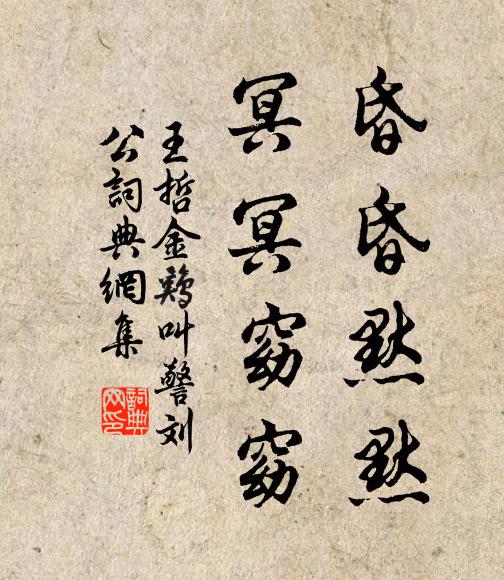 昏昏默默
冥冥窈窈
王哲金鷄叫警刘
公詞典網集
詞典
网印